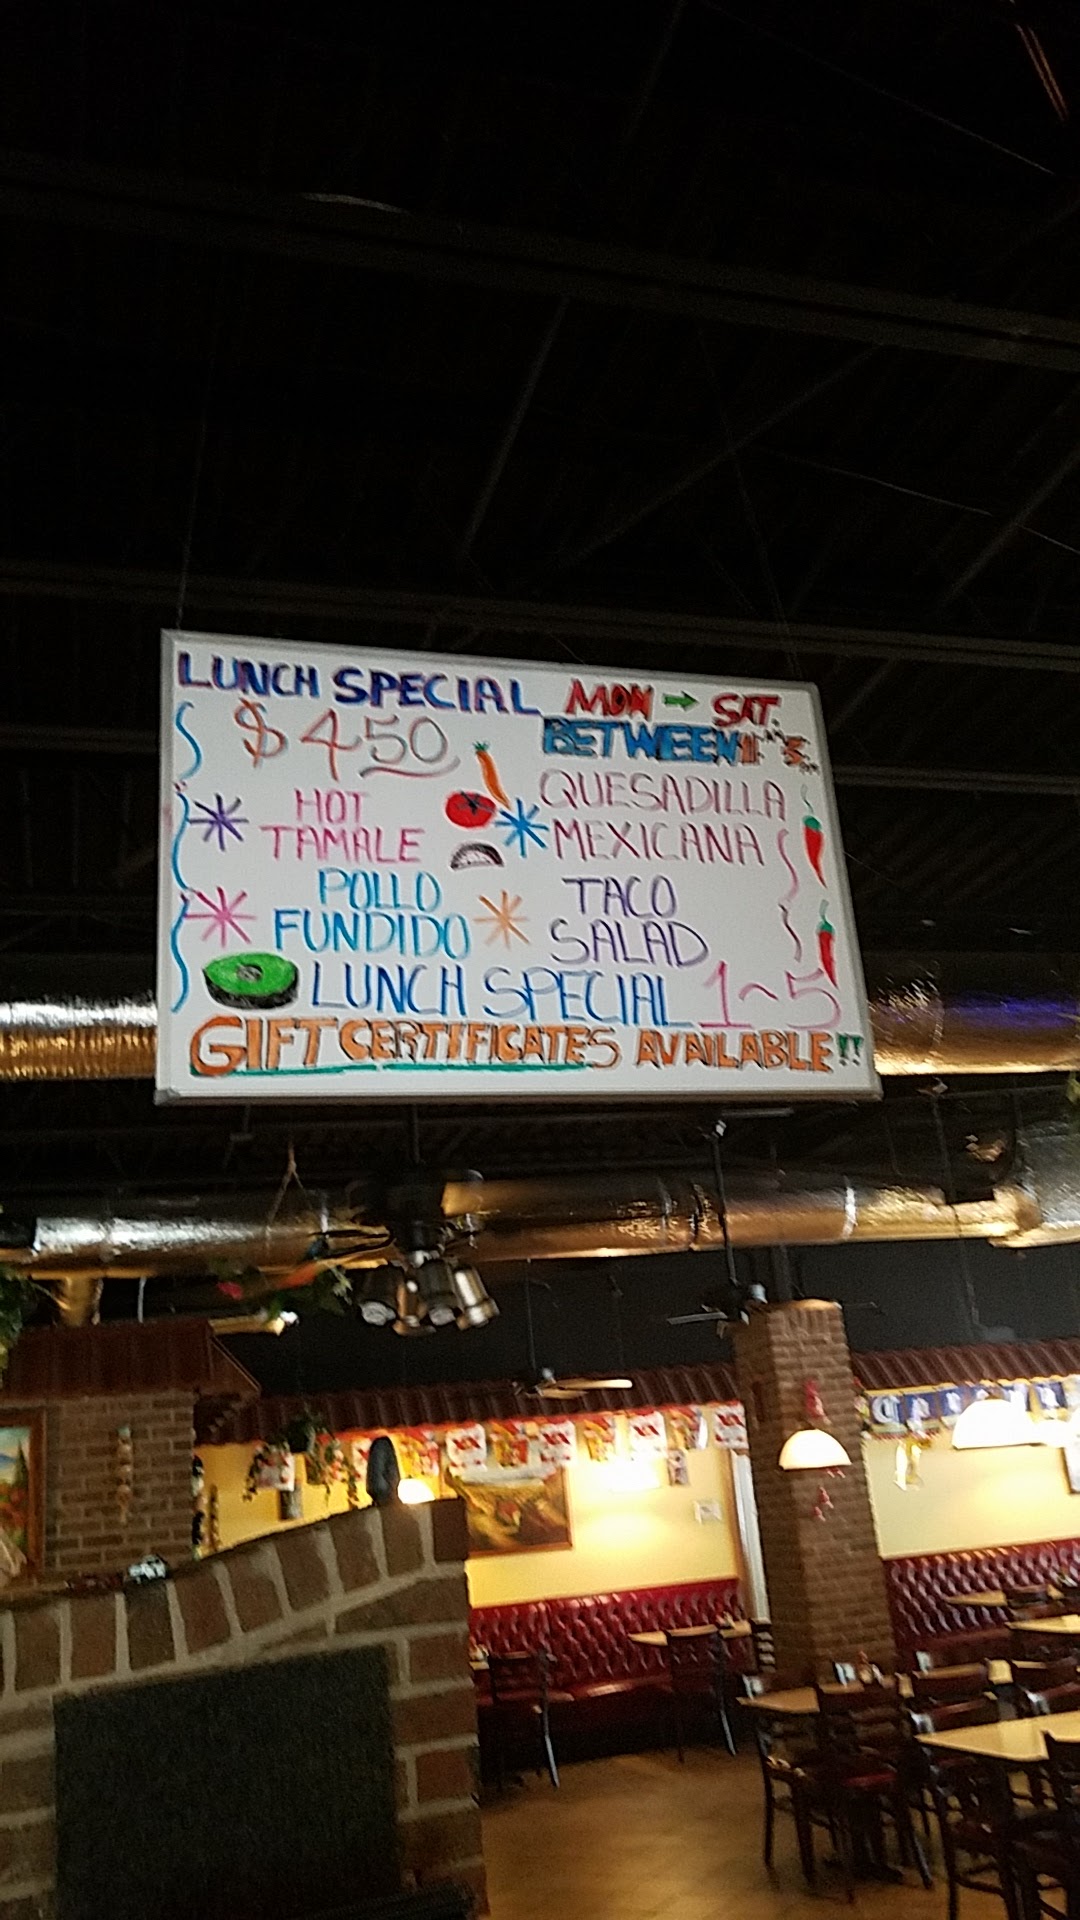 LUNCH SPECIAL MON → SAT.
$4.50 BETWEEN
HOT
TAMALE
QUESADILLA
MEXICANA
POLLO
FUNDIDO
TACO
SALAD
LUNCH SPECIAL 1~5
GIFT CERTIFICATES AVAILABLE!!
XX